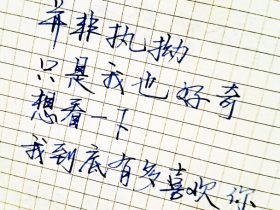 并非执拗
只是我也好奇
想看一下
我到底有多喜欢你